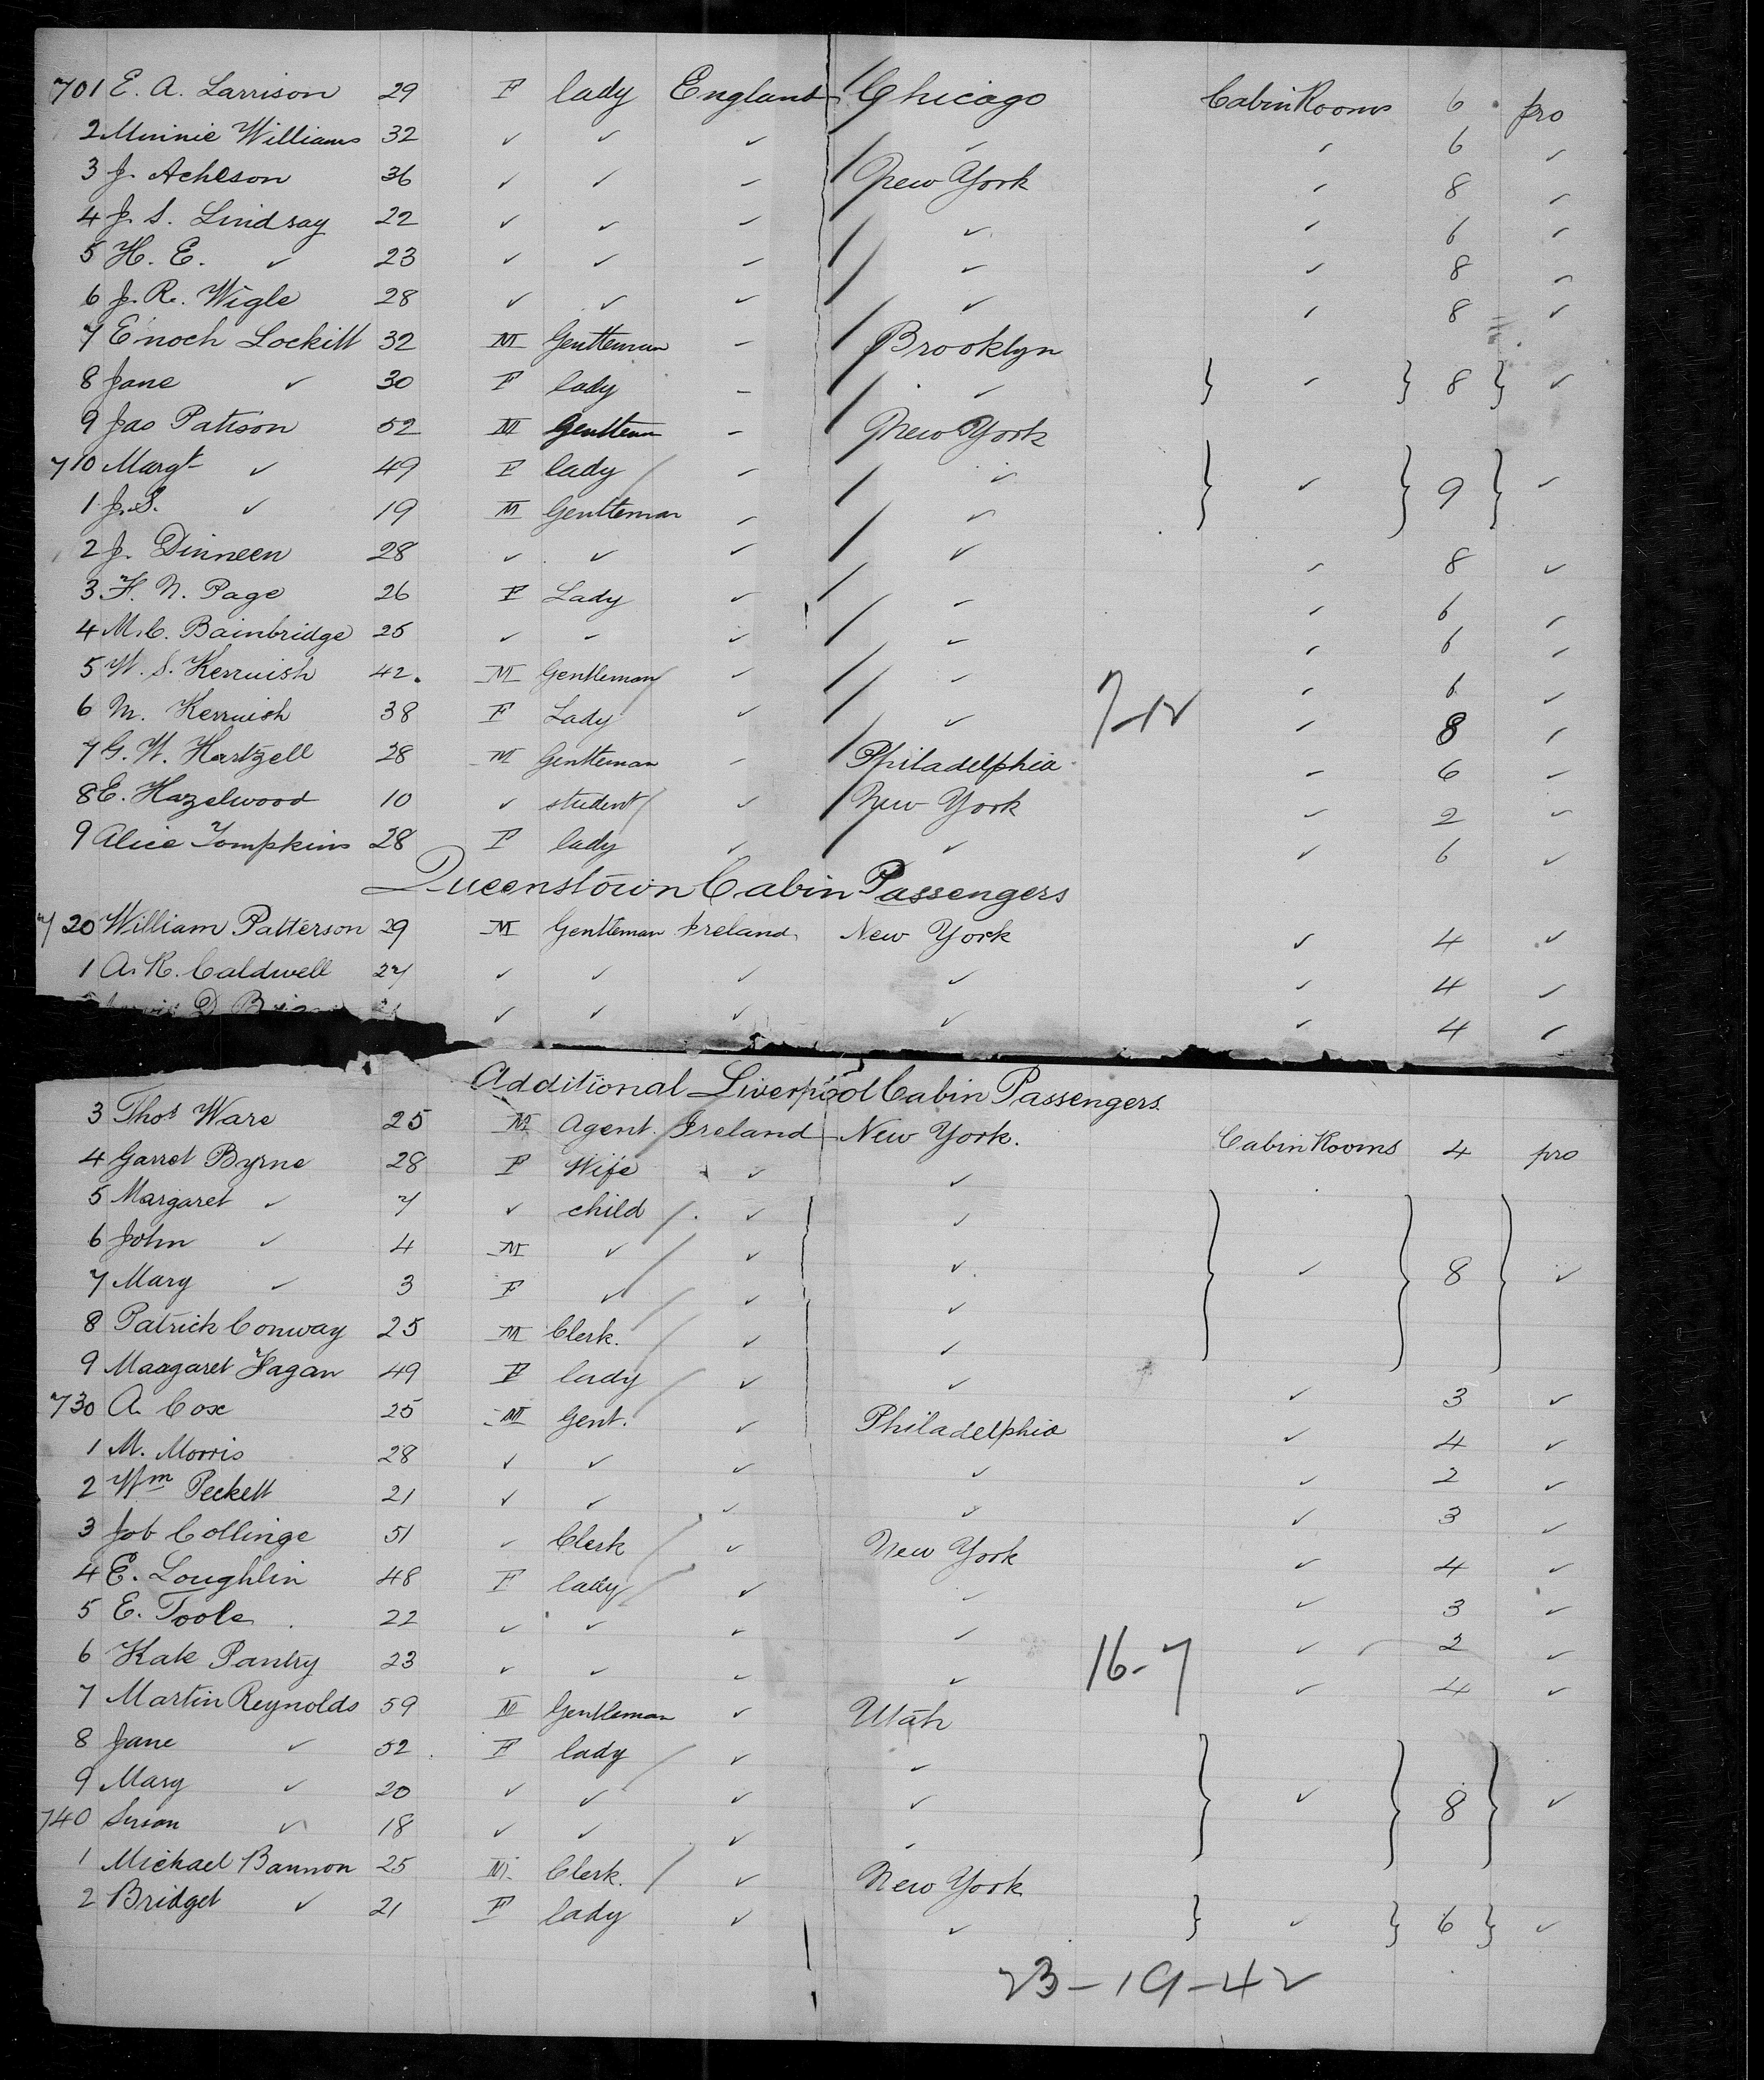 701 E. A. Larrison 29 F lady England Chicago Cabin Rooms 6 pro
2 Minnie Williams 32 ✓ ✓ ✓ ✓ ✓ 6 ✓
3 J. Acheson 36 ✓ ✓ ✓ New York ✓ 8 ✓
4 J. S. Lindsay 22 ✓ ✓ ✓ ✓ ✓ 6 ✓
5 H. E. ✓ 23 ✓ ✓ ✓ ✓ ✓ 8 ✓
6 J. R. Wigle 28 ✓ ✓ ✓ ✓ ✓ 8 ✓
7 Enoch Lockitt 32 M Gentleman ✓ Brooklyn
8 Jane ✓ 30 F lady ✓ ✓ } ✓ } 8 } ✓
9 Jas Patison 52 M Gentleman ✓ New York
710 Margt ✓ 49 F lady ✓ ✓ } ✓ } 9 } ✓
1 J. S. ✓ 19 M Gentleman ✓ ✓
2 J. Dinneen 28 ✓ ✓ ✓ ✓ ✓ 8 ✓
3 F. N. Page 26 F Lady ✓ ✓ ✓ 6 ✓
4 M. C. Bainbridge 25 ✓ ✓ ✓ ✓ ✓ 6 ✓
5 W. S. Kerruish 42. M Gentleman ✓ ✓ ✓ 6 ✓
6 M. Kerruish 38 F Lady ✓ ✓ 7-12 ✓ 8 ✓
7 G. W. Hartzell 28 M Gentleman ✓ Philadelphia ✓ 6 ✓
8 E. Hazelwood 10 ✓ student ✓ New York ✓ 2 ✓
9 Alice Tompkins 28 F lady ✓ ✓ ✓ 6 ✓
Queenstown Cabin Passengers
720 William Patterson 29 M Gentleman Ireland New York ✓ 4 ✓
1 A. R. Caldwell 27 ✓ ✓ ✓ ✓ ✓ 4 ✓
D ✓ ✓ ✓ ✓ ✓ 4 ✓
Additional Liverpool Cabin Passengers
3 Thos Ware 25 M Agent. Ireland New York. Cabin Rooms 4 pro
4 Garret Byrne 28 F Wife ✓ ✓
5 Margaret ✓ 7 ✓ child ✓ ✓
6 John ✓ 4 M ✓ ✓ ✓ } ✓ } 8 } ✓
7 Mary ✓ 3 F ✓ ✓ ✓
8 Patrick Conway 25 M Clerk. ✓ ✓ ✓ 3 ✓
9 Maagaret Fagan 49 F lady ✓ ✓ ✓ 4 ✓
730 A. Cox 25 M Gent. ✓ Philadelphia ✓ 2 ✓
1 M. Morris 28 ✓ ✓ ✓ ✓ ✓ 3 ✓
2 Wm Peckett 21 ✓ ✓ ✓ ✓ ✓ 4 ✓
3 Job Collinge 51 ✓ Clerk ✓ New York ✓ 3 ✓
4 E. Loughlin 48 F lady ✓ ✓ ✓ 2 ✓
5 E. Toole 22 ✓ ✓ ✓ ✓ ✓ 4 ✓
6 Kate Pantry 23 ✓ ✓ ✓ ✓ 16-7
7 Martin Reynolds 59 M Gentleman ✓ Utah
8 Jane ✓ 52 F lady ✓ ✓
9 Mary ✓ 20 ✓ ✓ ✓ ✓ } ✓ } 8 } ✓
740 Susan ✓ 18 ✓ ✓ ✓ ✓
1 Michael Bannon 25 M. Clerk. ✓ New York
2 Bridget ✓ 21 F lady ✓ ✓ } ✓ } 6 } ✓
23-19-42